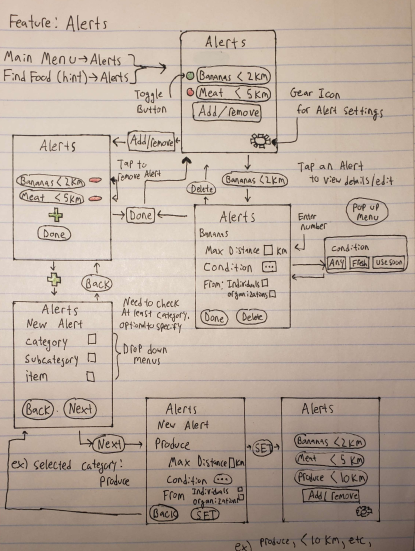 Feature: Alerts
Main Menu → Alerts
Find Food (hint) → Alerts
Toggle
Button
Alerts
Bananas < 2 Km
Meat < 5 Km
Add/remove
Gear Icon
for Alert settings
Alerts
Bananas < 2 Km
Meat < 5 Km
Done
Add/remove
Tap to
remove Alert
Done
Delete
Bananas < 2 Km
Tap an Alert
to view details/edit
Alerts
Bananas
Max Distance Km
Condition ...
From: Individuals
organizations
Done Delete
Enter
number
Pop up
menu
Condition
Any Fresh use soon
Back
Alerts
New Alert
category
Subcategory
item
Back Next
Need to check
At least category,
optional to specify
Drop down
menus
Next
ex) selected category:
Produce
Alerts
New Alert
Produce
Max Distance Km
Condition ...
From Individuals
organizations
Back SET
SET
Alerts
Bananas < 2 Km
Meat < 5 Km
Produce < 10 Km
Add/remove
ex) Produce, < 10 Km, etc,